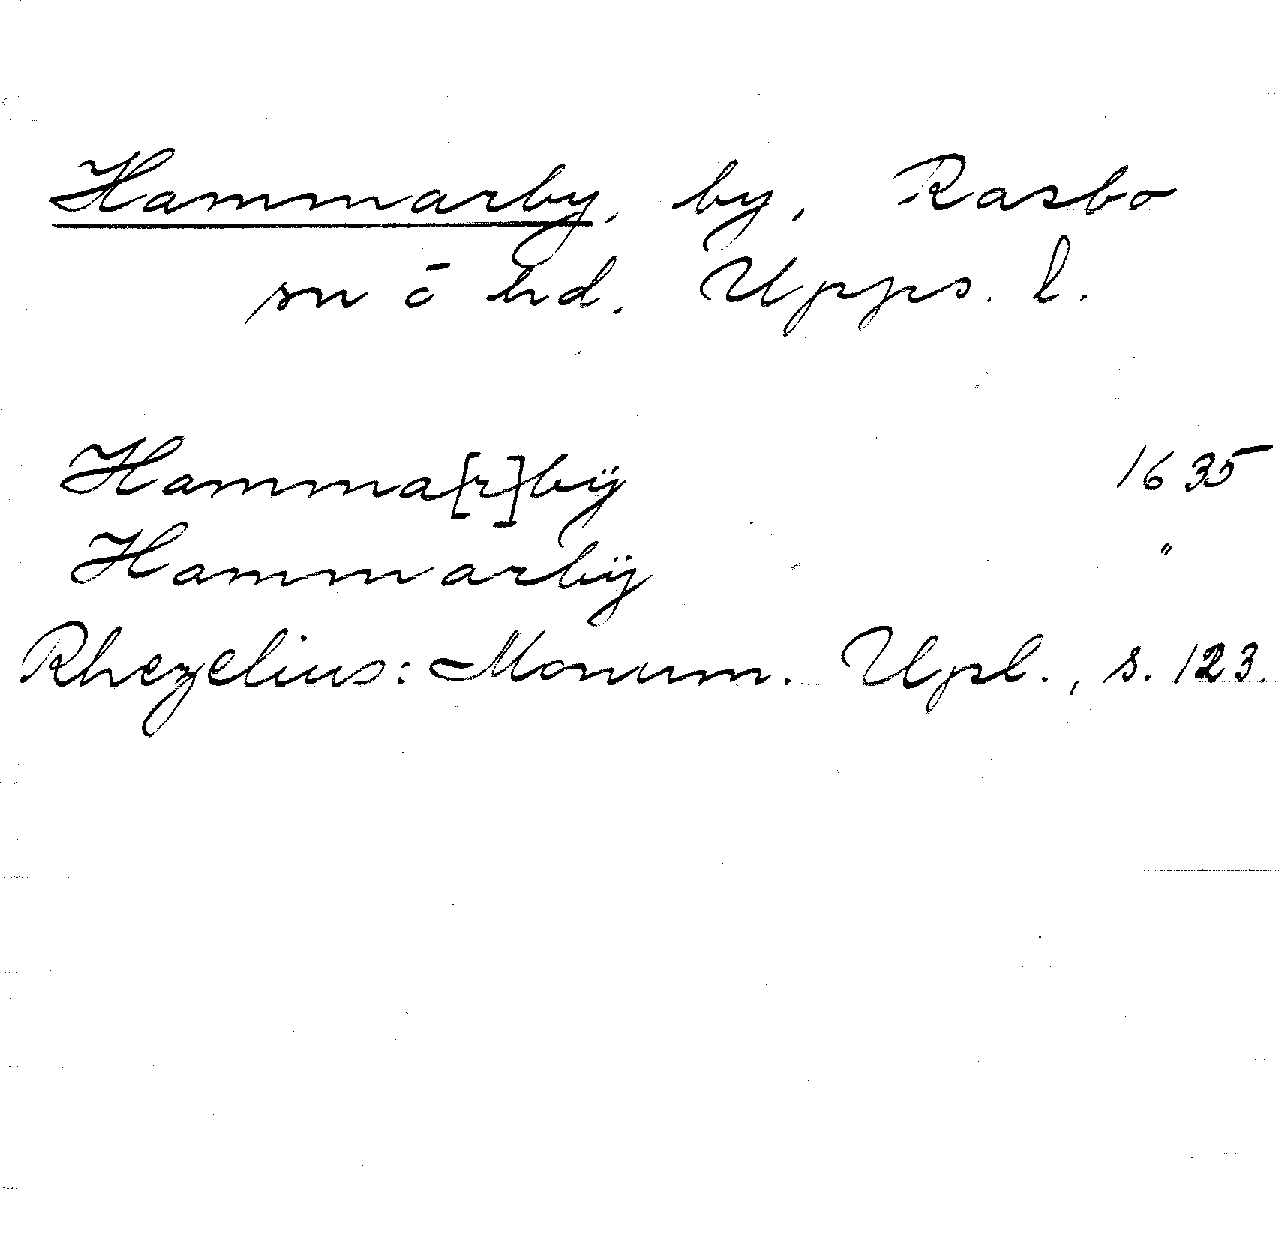 Hammarby, by, Rasbo
sn o hd. Upps. l.
Hamma[r]bÿ 1635
Hammarbÿ "
Rhezelius: Monum. Upl., s. 123.